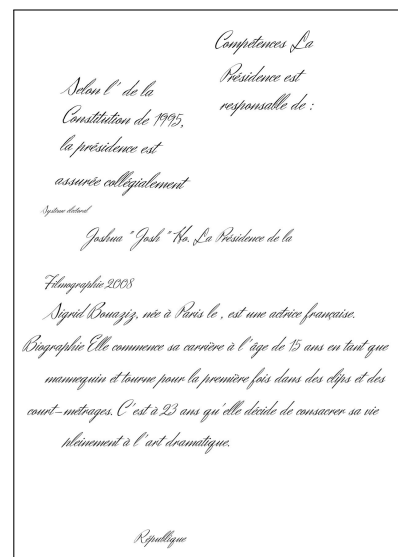 Compétences La
Présidence est
responsable de :
Selon l' de la
Constitution de 1995,
la présidence est
assurée collégialement
Système électoral
Joshua "Josh" Ho. La Présidence de la
Filmographie 2008
Sigrid Bouaziz, née à Paris le , est une actrice française.
Biographie Elle commence sa carrière à l'âge de 15 ans en tant que
mannequin et tourne pour la première fois dans des clips et des
court-métrages. C'est à 23 ans qu'elle décide de consacrer sa vie
pleinement à l'art dramatique.
République